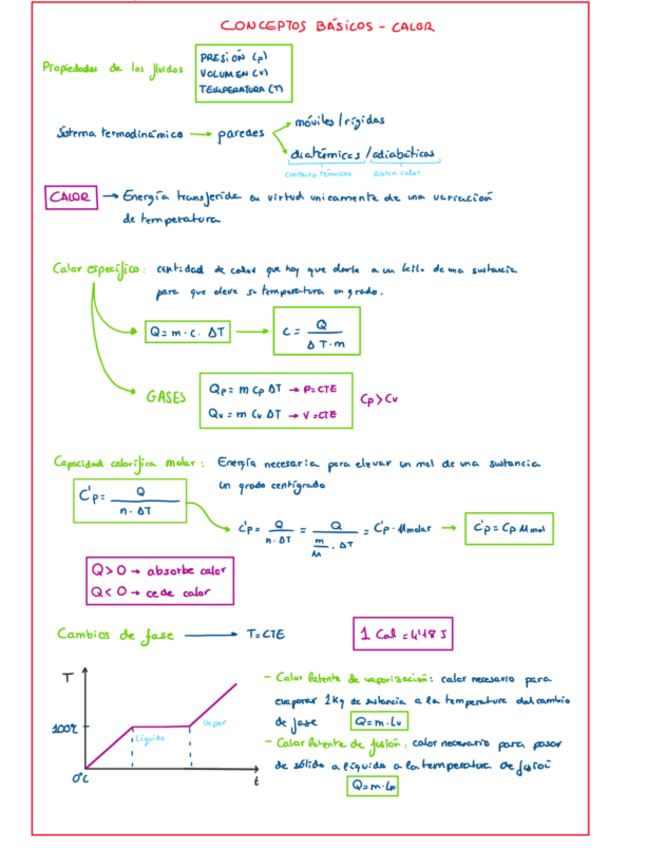 CONCEPTOS BÁSICOS - CALOR
Propiedades de los fluidos
PRESIÓN (p)
VOLUMEN (V)
TEMPERATURA (T)
Sistema termodinámico → paredes
móviles / rígidas
diatérmicas / adiabáticas
contacto térmicas
aislan calor
CALOR → Energía transferida en virtud unicamente de una variación
de temperatura
Calor específico: cantidad de calor que hay que darle a un kilo de una sustancia
para que eleve su temperatura un grado.
Q = m · c · ΔT → c = Q / ΔT · m
GASES
Qp = m Cp ΔT → P = CTE
Qv = m Cv ΔT → V = CTE
Cp > Cv
Capacidad calorífica molar: Energía necesaria para elevar un mol de una sustancia
un grado centígrado
C'p = Q / n · ΔT
C'p = Q / n · ΔT = Q / m/M · ΔT = Cp · Mmolar → C'p = Cp Mmol
Q > 0 → absorbe calor
Q < 0 → cede calor
Cambios de fase → T = CTE
1 Cal = 4'18 J
T
100ºC
Líquido
Vapor
0ºC
t
- Calor latente de vaporización: calor necesario para
evaporar 1 kg de sustancia a la temperatura del cambio
de fase Q = m · Lv
- Calor latente de fusión: calor necesario para pasar
de sólido a líquido a la temperatura de fusió
Q = m · Lp